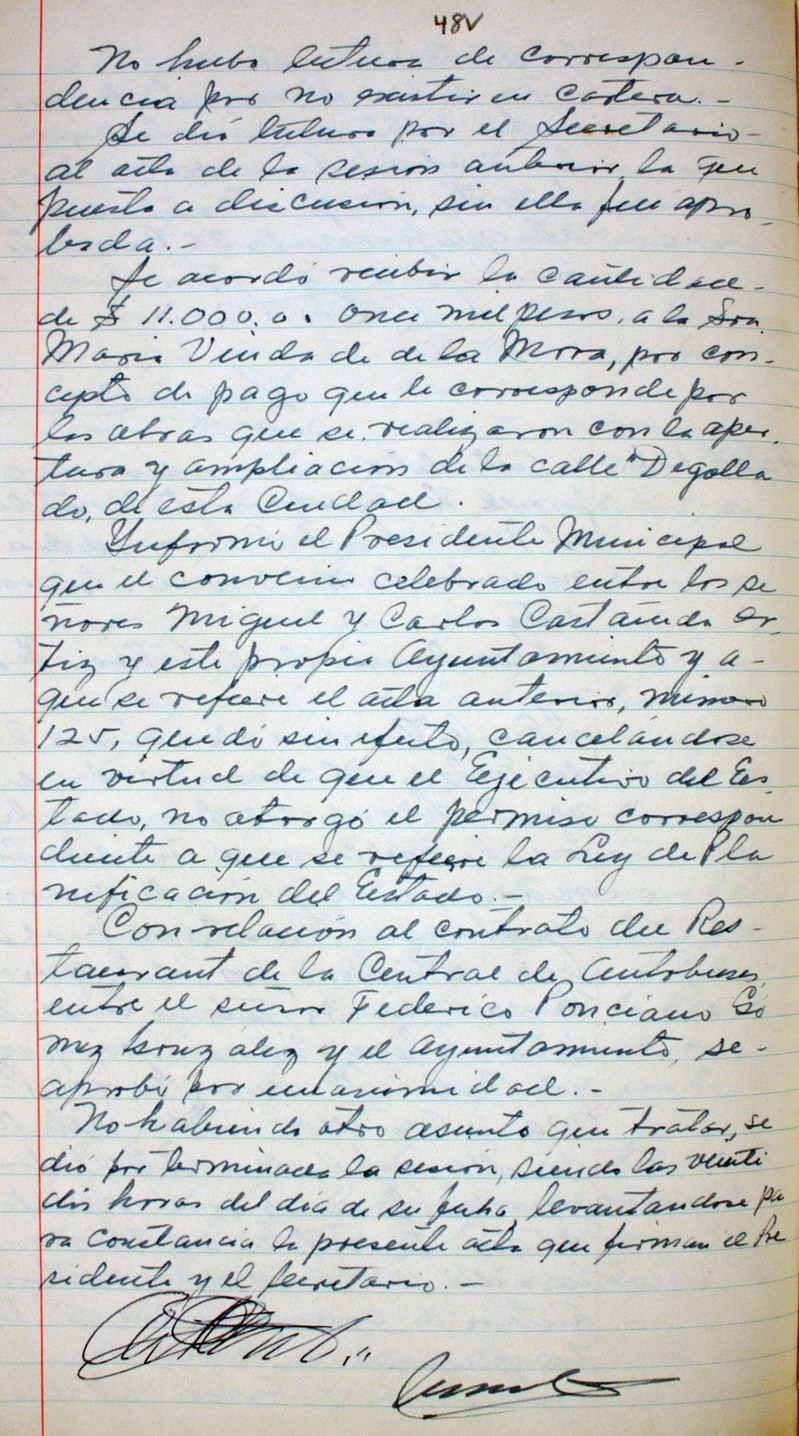 48V
No hubo lectura de correspon-
dencia por no existir en cartera.-
Se dió lectura por el Secretario-
al acta de la sesión anterior, la que
puesta a discusión, sin ella fué apro-
bada.-
Se acordó recibir la cantidad-
de $ 11.000.0. Once mil pesos, a la Sra.
Maria Viuda de de la Mora, por con-
cepto de pago que le corresponde por
las obras que se realizaron con la aper-
tura y ampliación de la calle "Degolla
do, de esta Ciudad.
Informó el Presidente Municipal
que el convenio celebrado entre los se
ñores Miguel y Carlos Castañeda Or-
tiz y este propio Ayuntamiento y a-
que se refiere el acta anterior, número
125, quedó sin efecto, cancelándose
en virtud de que el Ejecutivo del Es-
tado, no otorgó el permiso correspon
diente a que se refiere la Ley de Pla
nificación del Estado.-
Con relación al contrato del Res-
taurant de la Central de Autobuses,
entre el señor Federico Ponciano Gó
mez González y el Ayuntamiento, se-
aprobó por unanimidad.-
No habiendo otro asunto que tratar, se
dió por terminada la sesión, siendo las veinti
dós horas del día de su fecha levantandose pa
ra constancia la presente acta que firman el Pre
sidente y el Secretario.-